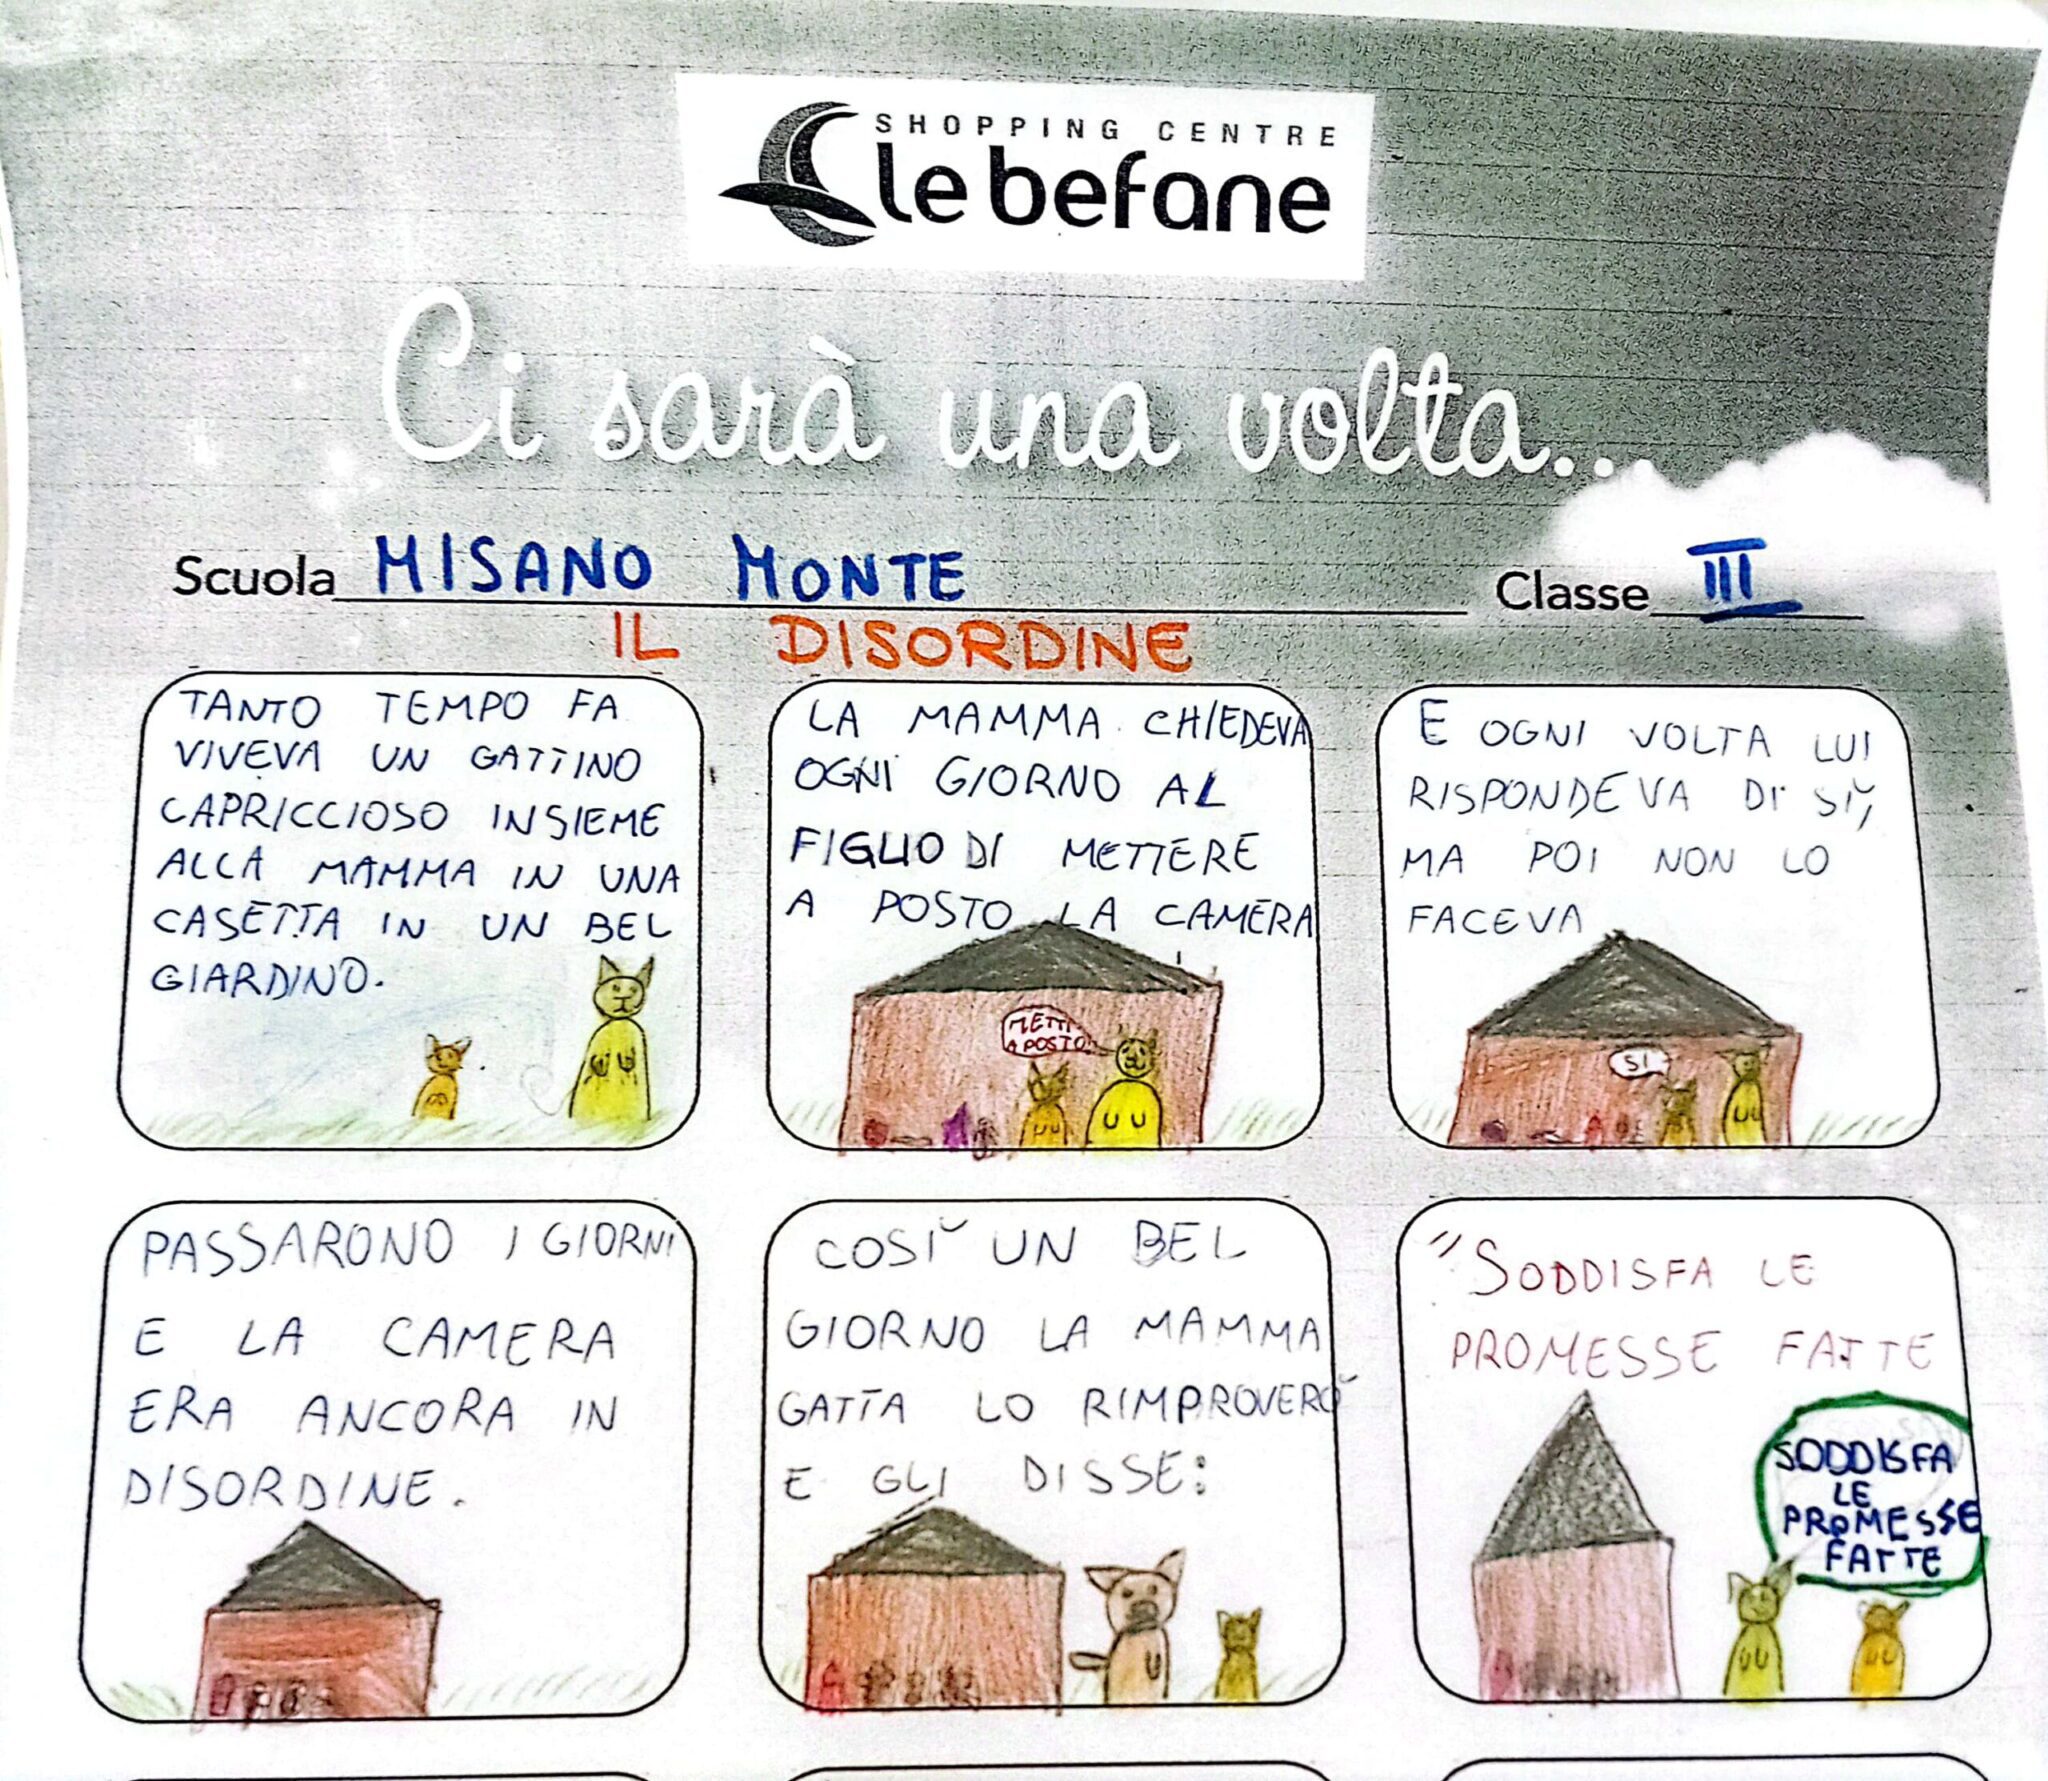 SHOPPING CENTRE
le befane
Ci sarà una volta...
Scuola MISANO MONTE Classe III
IL DISORDINE
TANTO TEMPO FA
VIVEVA UN GATTINO
CAPRICCIOSO INSIEME
ALLA MAMMA IN UNA
CASETTA IN UN BEL
GIARDINO.
LA MAMMA CHIEDEVA
OGNI GIORNO AL
FIGLIO DI METTERE
A POSTO LA CAMERA
METTI
A POSTO
E OGNI VOLTA LUI
RISPONDEVA DI SÌ,
MA POI NON LO
FACEVA
SI
PASSARONO I GIORNI
E LA CAMERA
ERA ANCORA IN
DISORDINE.
COSÌ UN BEL
GIORNO LA MAMMA
GATTA LO RIMPROVERÒ
E GLI DISSE:
"SODDISFA LE
PROMESSE FATTE
SODDISFA
LE
PROMESSE
FATTE